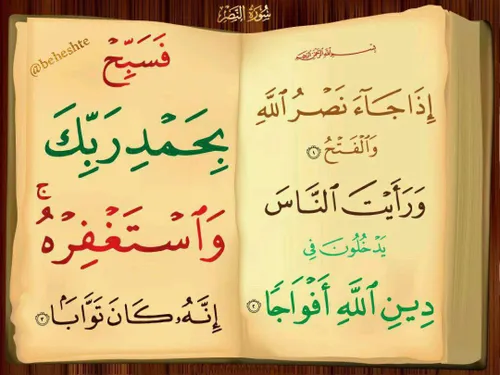 سُورَةُ النَّصْرِ
بِسْمِ اللَّهِ الرَّحْمَٰنِ الرَّحِيمِ
إِذَا جَآءَ نَصْرُ ٱللَّهِ
وَٱلْفَتْحُ ١
وَرَأَيْتَ ٱلنَّاسَ
يَدْخُلُونَ فِي
دِينِ ٱللَّهِ أَفْوَاجًا ٢
@beheshte
فَسَبِّحْ
بِحَمْدِ رَبِّكَ
وَٱسْتَغْفِرْهُ ۚ
إِنَّهُۥ كَانَ تَوَّابًۢا ٣